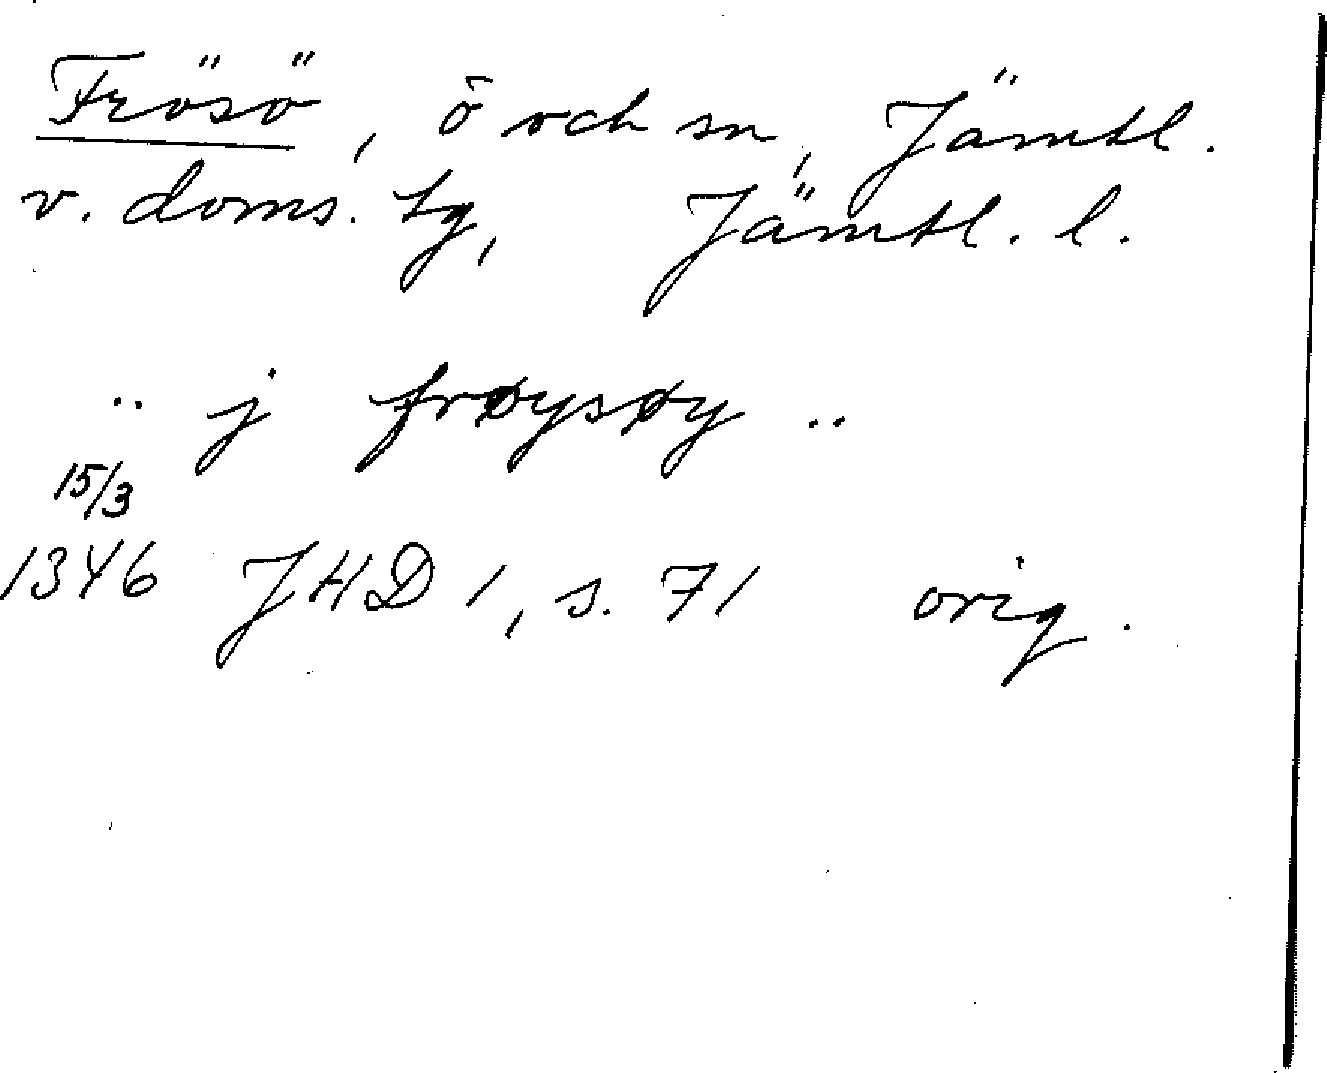 Frösö, ö och sn, Jämtl.
v. doms. tg, Jämtl. l.
.. j frøysøy ..
15/3
1346 JHD 1, s. 71 orig.